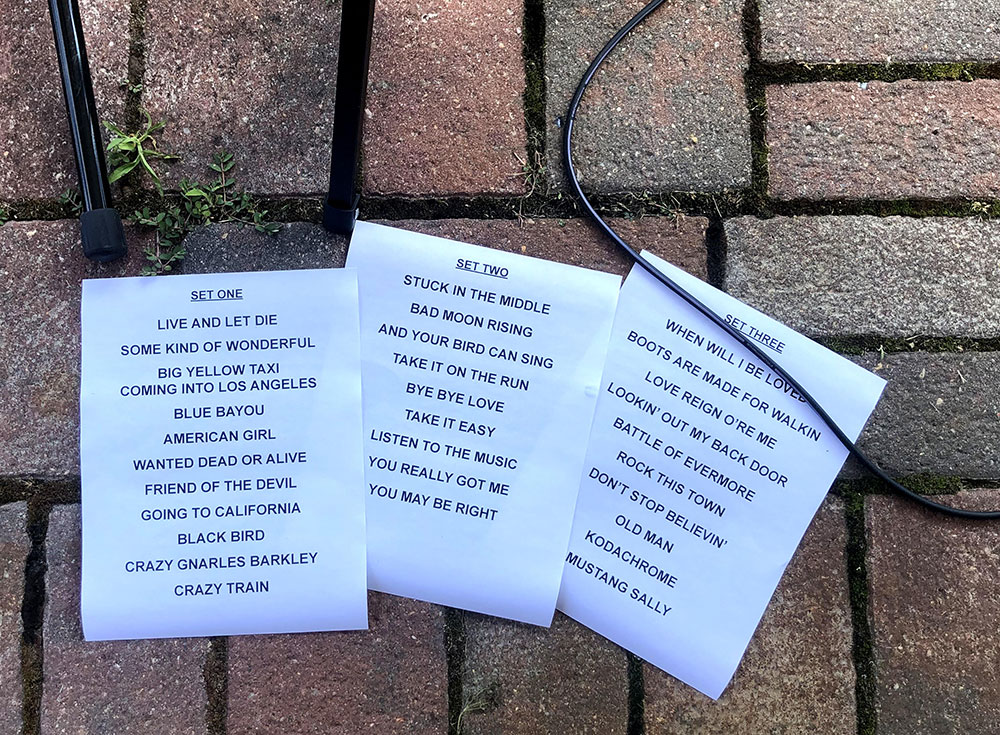 SET ONE
LIVE AND LET DIE
SOME KIND OF WONDERFUL
BIG YELLOW TAXI
COMING INTO LOS ANGELES
BLUE BAYOU
AMERICAN GIRL
WANTED DEAD OR ALIVE
FRIEND OF THE DEVIL
GOING TO CALIFORNIA
BLACK BIRD
CRAZY GNARLES BARKLEY
CRAZY TRAIN
SET TWO
STUCK IN THE MIDDLE
BAD MOON RISING
AND YOUR BIRD CAN SING
TAKE IT ON THE RUN
BYE BYE LOVE
TAKE IT EASY
LISTEN TO THE MUSIC
YOU REALLY GOT ME
YOU MAY BE RIGHT
SET THREE
WHEN WILL I BE LOVED
BOOTS ARE MADE FOR WALKIN
LOVE REIGN O'RE ME
LOOKIN' OUT MY BACK DOOR
BATTLE OF EVERMORE
ROCK THIS TOWN
DON'T STOP BELIEVIN'
OLD MAN
KODACHROME
MUSTANG SALLY